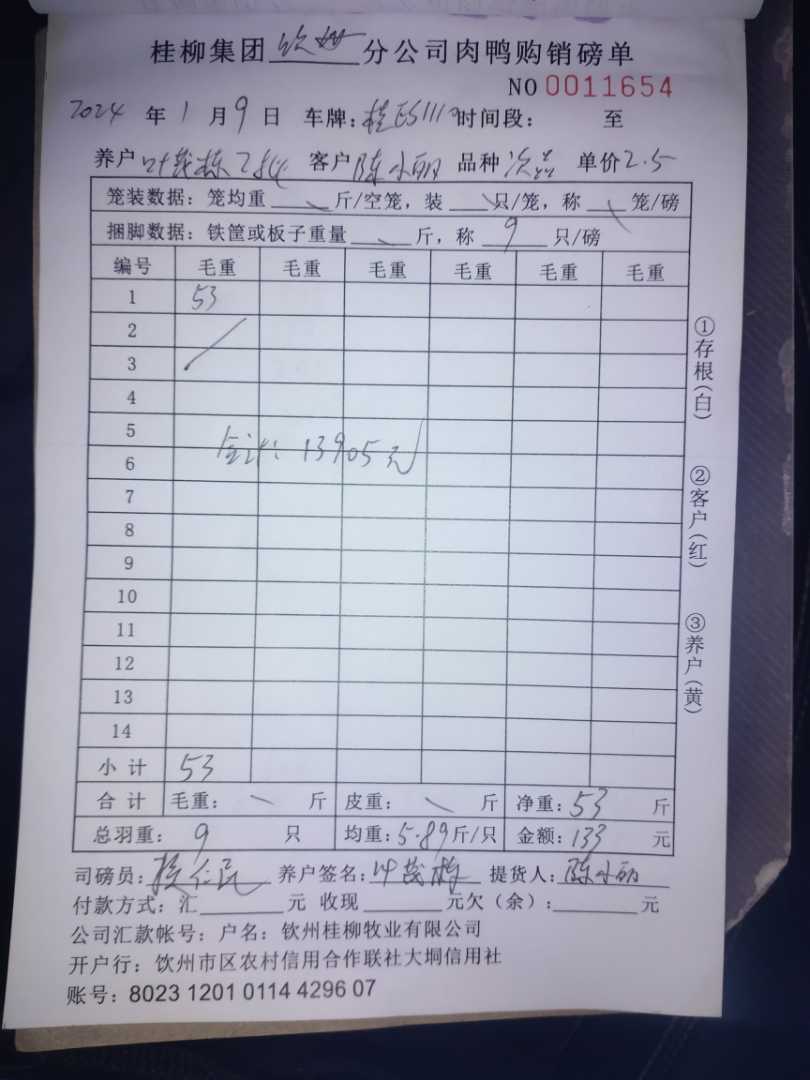 桂柳集团 钦州 分公司肉鸭购销磅单
NO 0011654
2024 年 1 月 9 日 车牌: 桂ES111 时间段: 至
养户 叶茂栋 客户 陈小丽 品种 次品 单价 2.5
笼装数据: 笼均重 斤/空笼, 装 只/笼, 称 笼/磅
捆脚数据: 铁筐或板子重量 斤, 称 9 只/磅
编号 毛重 毛重 毛重 毛重 毛重 毛重
1 53
2
3
4
5
合计: 13905元
6
7
8
9
10
11
12
13
14
小计 53
合计 毛重: 斤 皮重: 斤 净重: 53 斤
总羽重: 9 只 均重: 5.89 斤/只 金额: 133 元
司磅员: 养户签名: 叶茂栋 提货人: 陈小丽
付款方式: 汇 元 收现 元欠(余): 元
公司汇款帐号: 户名: 钦州桂柳牧业有限公司
开户行: 饮州市区农村信用合作联社大垌信用社
账号: 8023 1201 0114 4296 07
①存根(白)
②客户(红)
③养户(黄)